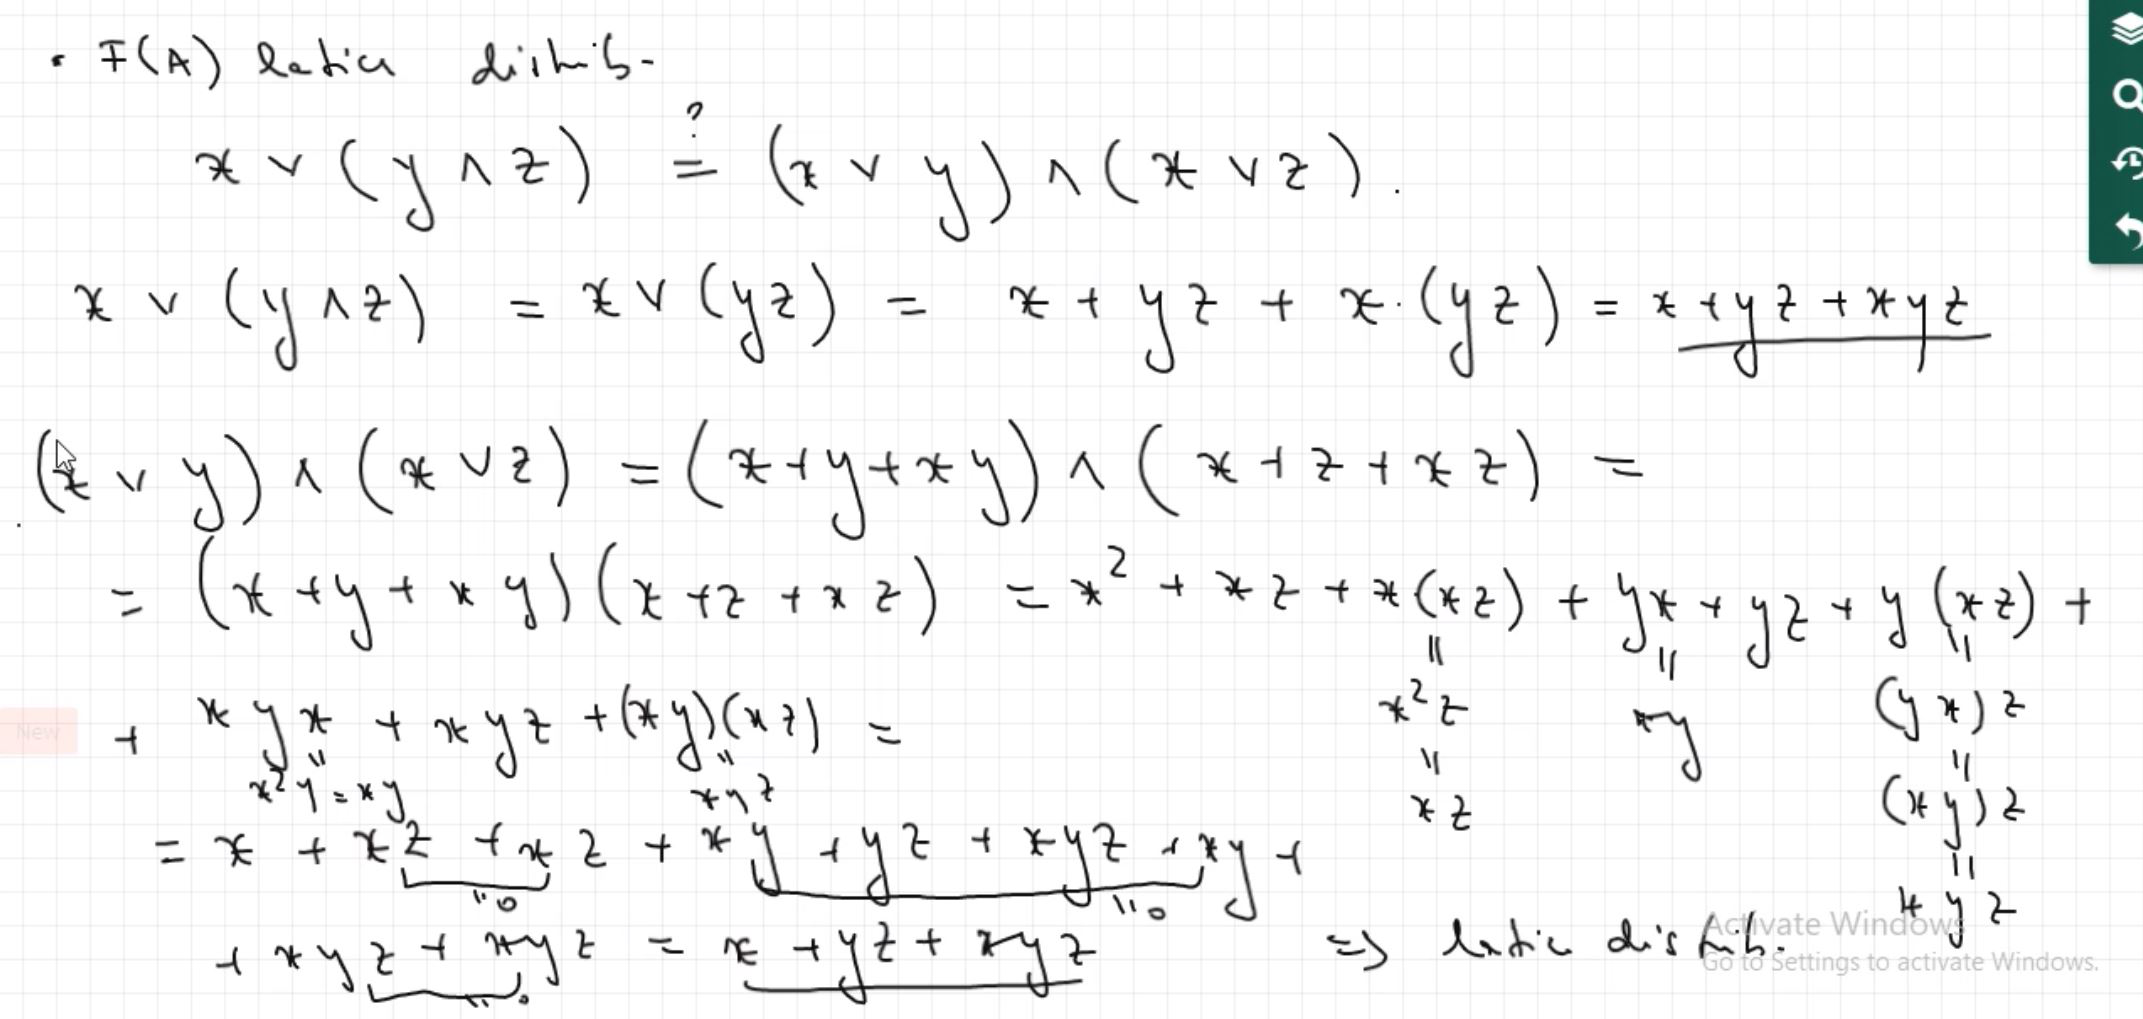 • F(A) latice distrib.
x ∨ (y ∧ z) ?= (x ∨ y) ∧ (x ∨ z).
x ∨ (y ∧ z) = x ∨ (yz) = x + yz + x·(yz) = x + yz + xyz
(x ∨ y) ∧ (x ∨ z) = (x + y + xy) ∧ (x + z + xz) =
= (x + y + xy)(x + z + xz) = x² + xz + x(xz) + yx + yz + y(xz) +
= x²z = xz
= xy
= (yx)z = (xy)z = xyz
+ xyx + xyz + (xy)(xz) =
= x²y = xy
= xyz
= x + xz + xz + xy + yz + xyz + xy +
= 0
= 0
+ xyz + xyz = x + yz + xyz ⇒ latice distrib.
= 0
New
Activate Windows
Go to Settings to activate Windows.